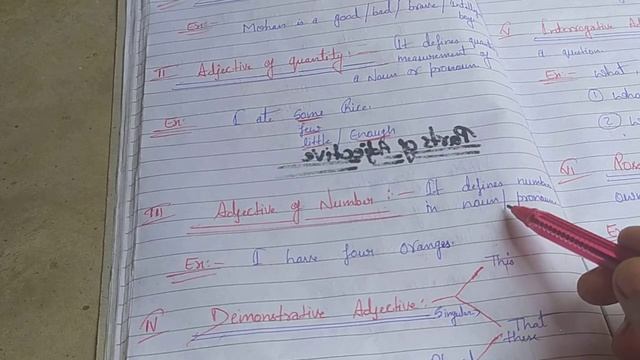 Ex:- Mohan is a good/bad/brave/intelligent boy.
II Adjective of quantity:- It defines quantity
measurement of
a Noun or pronoun
Ex:- I ate Some Rice.
few
little/Enough
Parts of Adjective
III Adjective of Number:- It defines number
in noun/pronoun
Ex:- I have four oranges.
IV Demonstrative Adjective:-
This
Singular
That
these
V Interrogative
a question
Ex:- What
①
②
VI
Ex